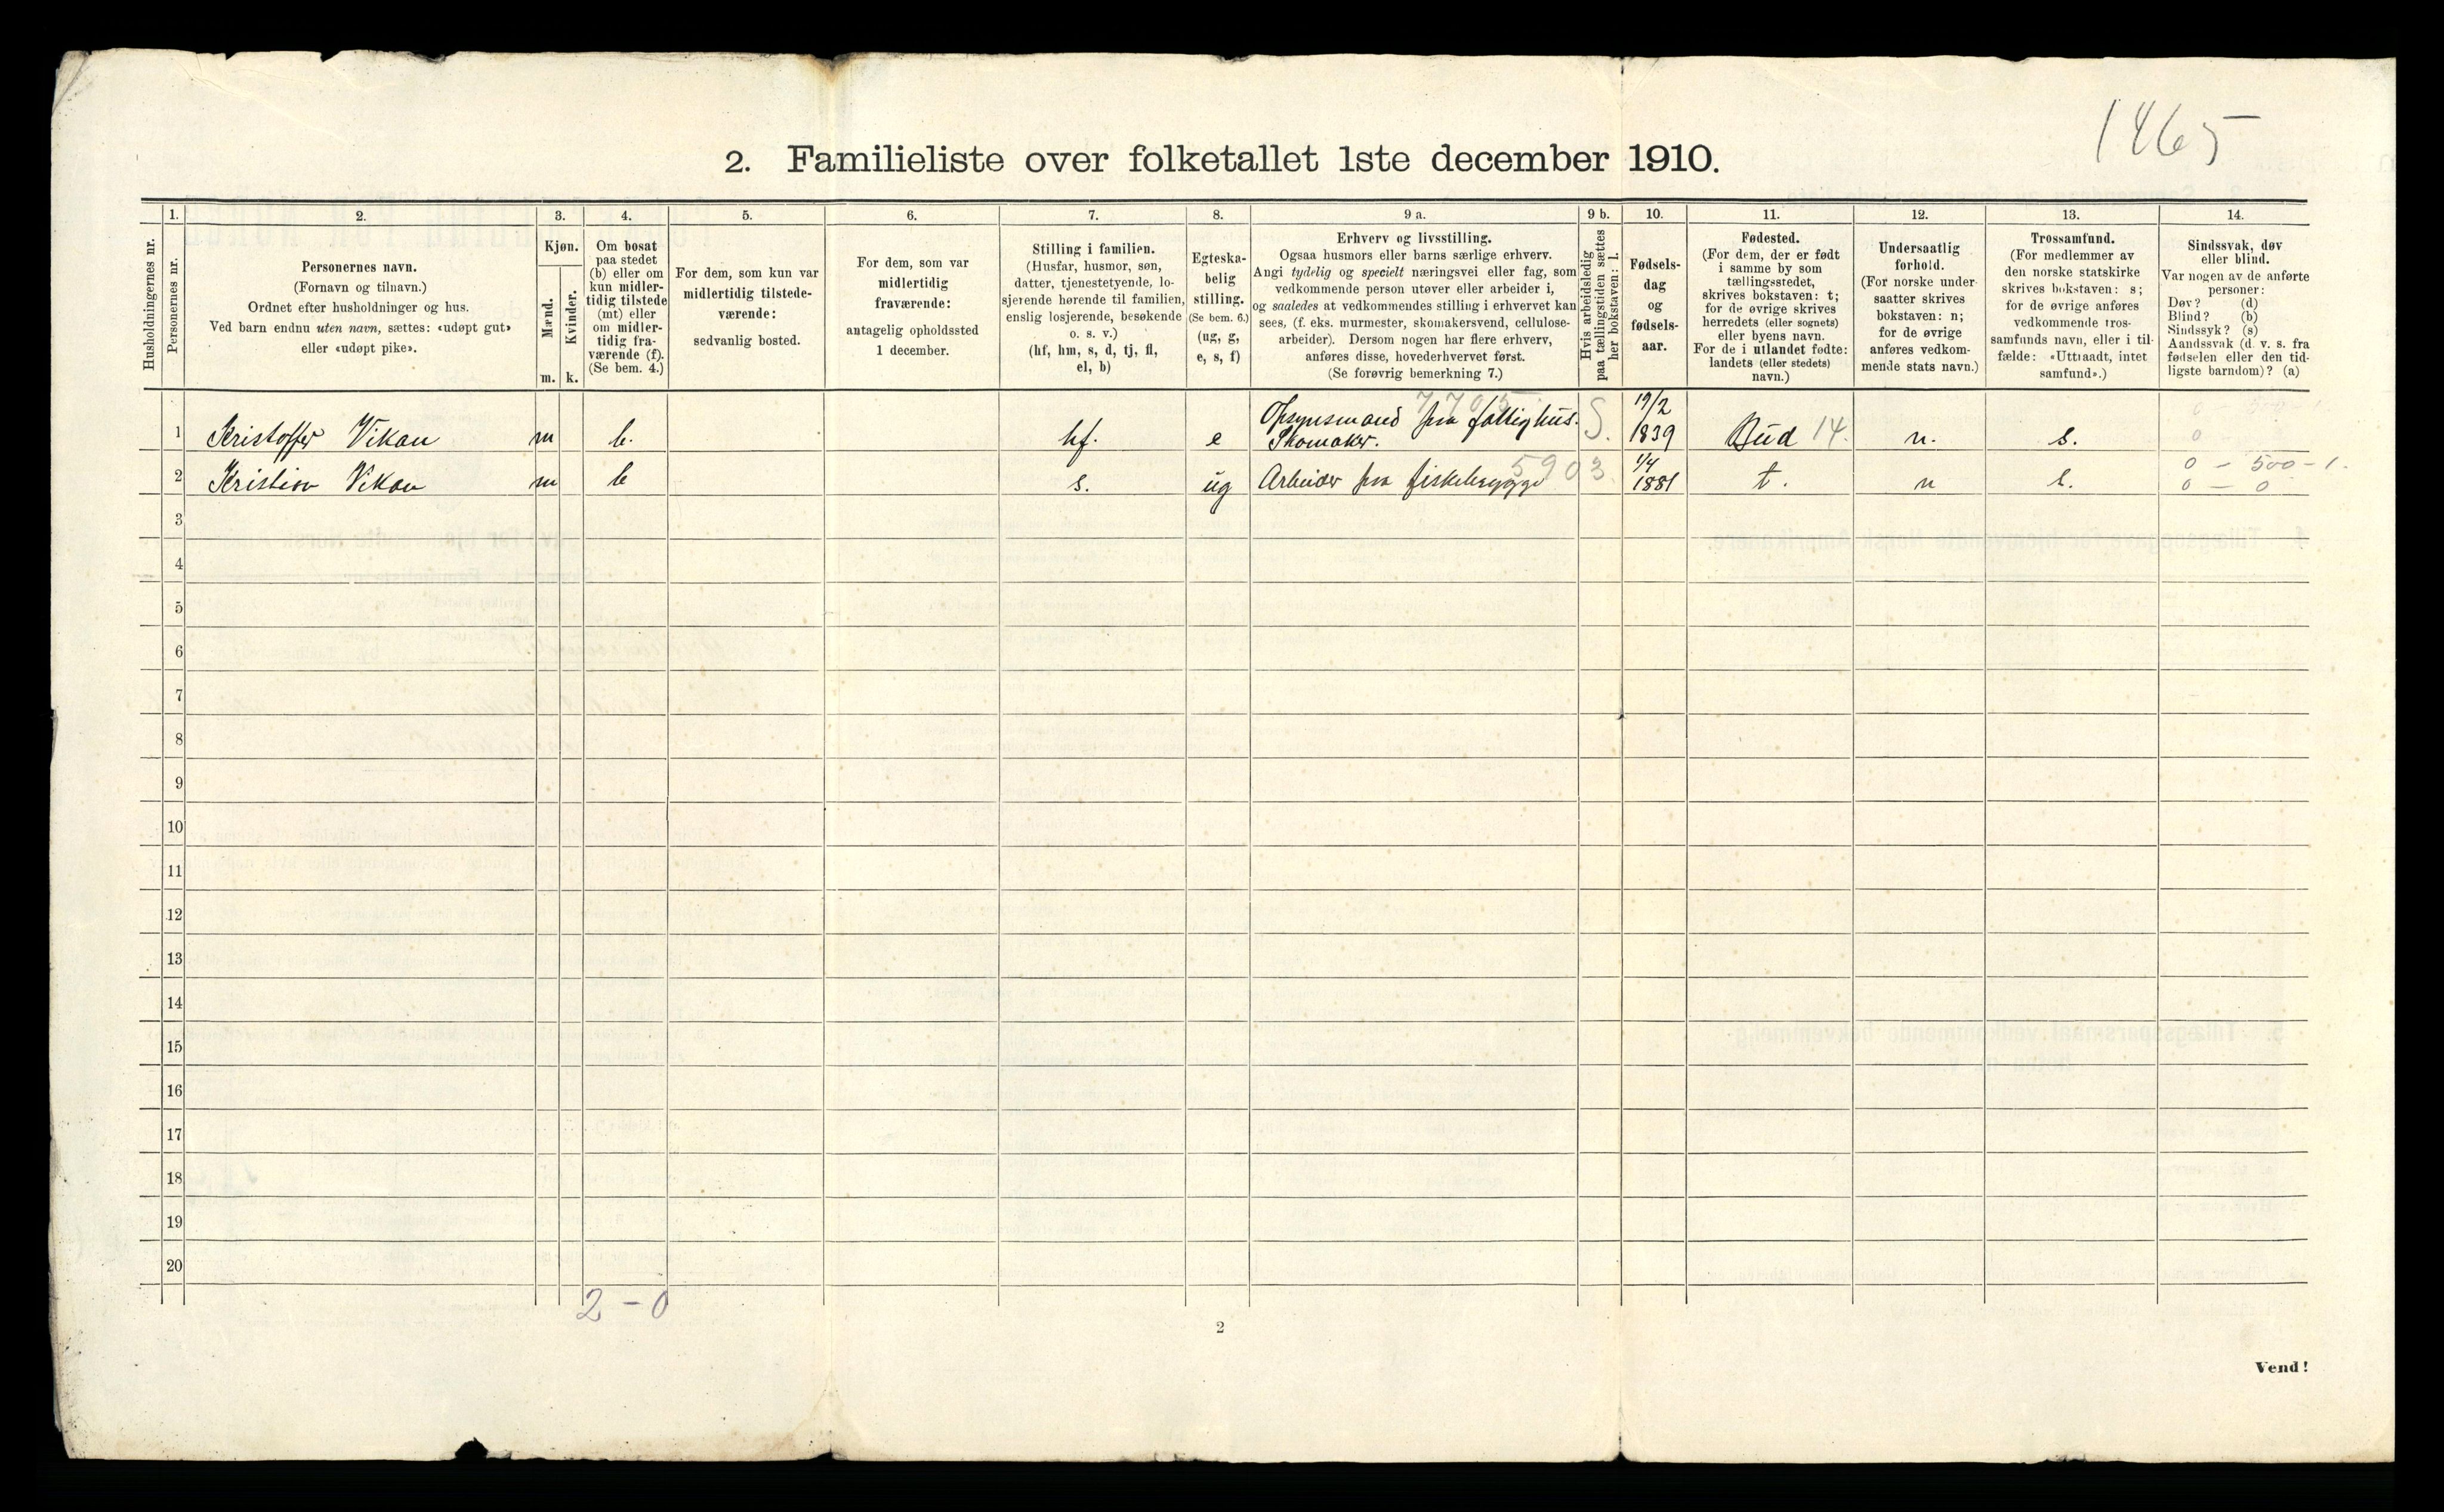 1465
2. Familieliste over folketallet 1ste december 1910.
1. 2. 3. 4. 5. 6. 7. 8. 9 a. 9 b. 10. 11. 12. 13. 14.
Husholdningernes nr.
Personernes nr.
Personernes navn.
(Fornavn og tilnavn.)
Ordnet efter husholdninger og hus.
Ved barn endnu uten navn, sættes: «udøpt gut»
eller «udøpt pike».
Kjøn.
Mænd.
Kvinder.
m. k.
Om bosat
paa stedet
(b) eller om
kun midler-
tidig tilstede
(mt) eller
om midler-
tidig fra-
værende (f).
(Se bem. 4.)
For dem, som kun var
midlertidig tilstede-
værende:
sedvanlig bosted.
For dem, som var
midlertidig
fraværende:
antagelig opholdssted
1 december.
Stilling i familien.
(Husfar, husmor, søn,
datter, tjenestetyende, lo-
sjerende hørende til familien,
enslig losjerende, besøkende
o. s. v.)
(hf, hm, s, d, tj, fl,
el, b)
Egteska-
belig
stilling.
(Se bem. 6.)
(ug, g,
e, s, f)
Erhverv og livsstilling.
Ogsaa husmors eller barns særlige erhverv.
Angi tydelig og specielt næringsvei eller fag, som
vedkommende person utøver eller arbeider i,
og saaledes at vedkommendes stilling i erhvervet kan
sees, (f. eks. murmester, skomakersvend, cellulose-
arbeider). Dersom nogen har flere erhverv,
anføres disse, hovederhvervet først.
(Se forøvrig bemerkning 7.)
Hvis arbeidsledig
paa tællingstiden sættes
her bokstaven: l.
Fødsels-
dag
og
fødsels-
aar.
Fødested.
(For dem, der er født
i samme by som
tællingsstedet,
skrives bokstaven: t;
for de øvrige skrives
herredets (eller sognets)
eller byens navn.
For de i utlandet fødte:
landets (eller stedets)
navn.)
Undersaatlig
forhold.
(For norske under-
saatter skrives
bokstaven: n;
for de øvrige
anføres vedkom-
mende stats navn.)
Trossamfund.
(For medlemmer av
den norske statskirke
skrives bokstaven: s;
for de øvrige anføres
vedkommende tros-
samfunds navn, eller i til-
fælde: «Uttraadt, intet
samfund».)
Sindssvak, døv
eller blind.
Var nogen av de anførte
personer:
Døv? (d)
Blind? (b)
Sindssyk? (s)
Aandssvak (d. v. s. fra
fødselen eller den tid-
ligste barndom)? (a)
7705
Opsynsmand paa fattighus. 19/2
1 Kristoffer Vikan m b. hf. e Skomaker. S. 1839 Bud 14. n. s. 0
5903 1/4 0 - 500 - 1.
2 Kristian Vikan m b s. ug Arbeider paa fiskebrygge 1881 t. n s. 0 - 0
3
4
5
6
7
8
9
10
11
12
13
14
15
16
17
18
19
20
2 - 0
2
Vend!